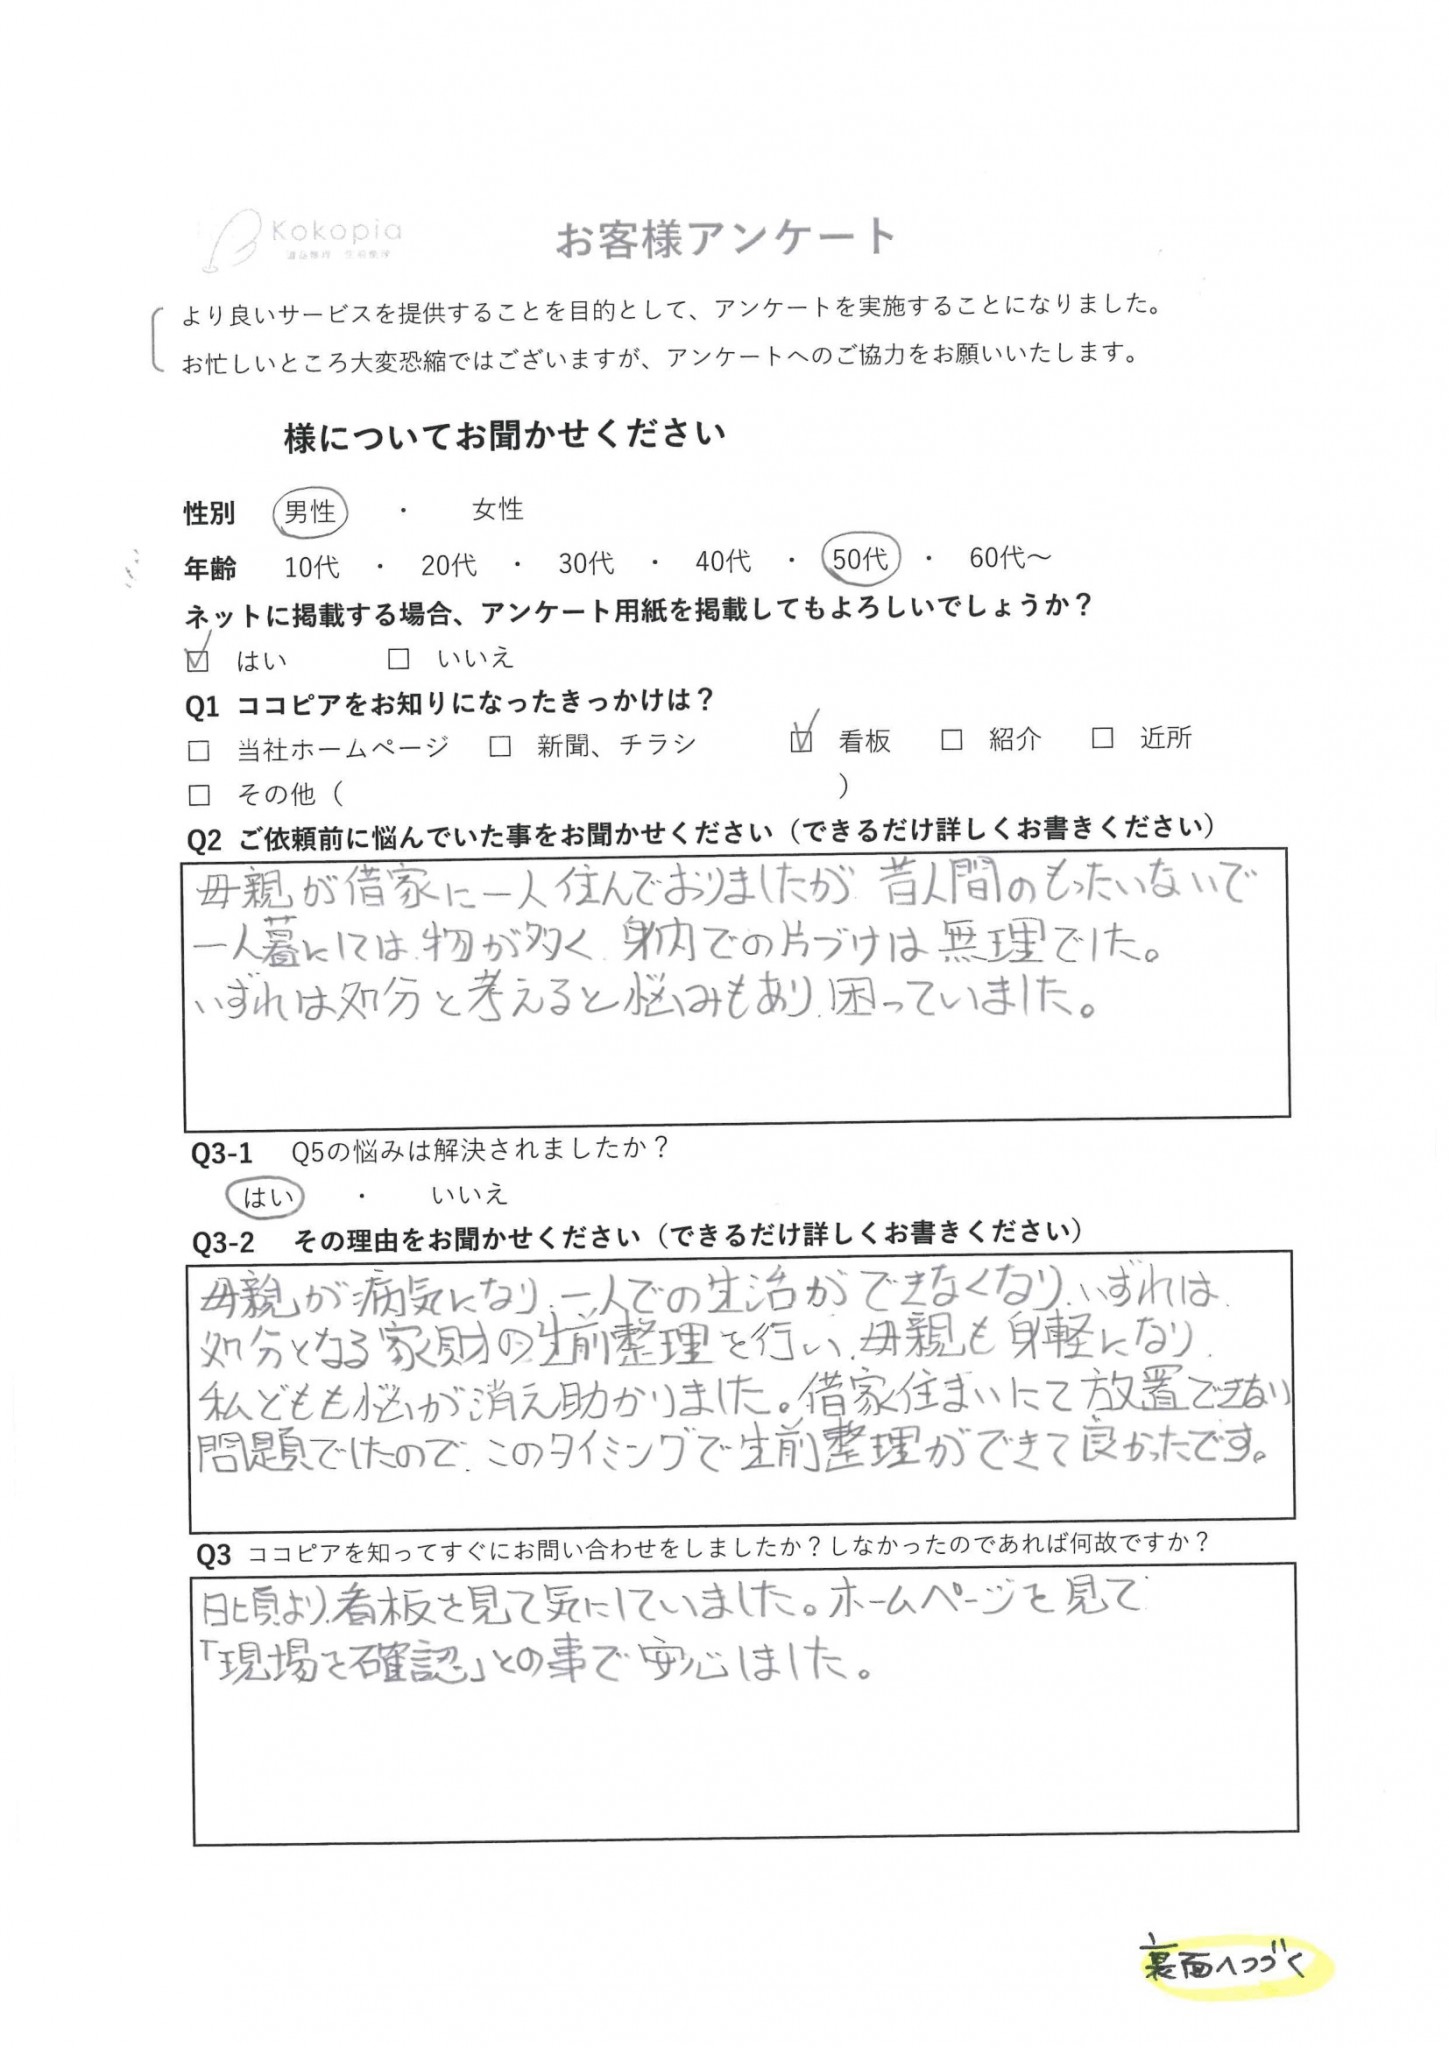 Kokopia
遺品整理 生前整理
お客様アンケート
より良いサービスを提供することを目的として、アンケートを実施することになりました。
お忙しいところ大変恐縮ではございますが、アンケートへのご協力をお願いいたします。
様についてお聞かせください
性別 男性 ・ 女性
年齢 10代 ・ 20代 ・ 30代 ・ 40代 ・ 50代 ・ 60代〜
ネットに掲載する場合、アンケート用紙を掲載してもよろしいでしょうか？
☑ はい □ いいえ
Q1 ココピアをお知りになったきっかけは？
□ 当社ホームページ □ 新聞、チラシ ☑ 看板 □ 紹介 □ 近所
□ その他（ ）
Q2 ご依頼前に悩んでいた事をお聞かせください（できるだけ詳しくお書きください）
母親が借家に一人住んでおりましたが、昔人間のもったいないで
一人暮にしては、物が多く、身内での片づけは無理でした。
いずれは処分と考えると悩みもあり、困っていました。
Q3-1 Q5の悩みは解決されましたか？
はい ・ いいえ
Q3-2 その理由をお聞かせください（できるだけ詳しくお書きください）
母親が病気になり、一人での生活ができなくなり、いずれは、
処分となる家財の生前整理を行い、母親も身軽になり、
私どもも悩が消え助かりました。借家住まいにて放置できない
問題でしたので、このタイミングで生前整理ができて良かったです。
Q3 ココピアを知ってすぐにお問い合わせをしましたか？しなかったのであれば何故ですか？
日頃より、看板を見て気にしていました。ホームページを見て
「現場を確認」との事で安心しました。
裏面へつづく